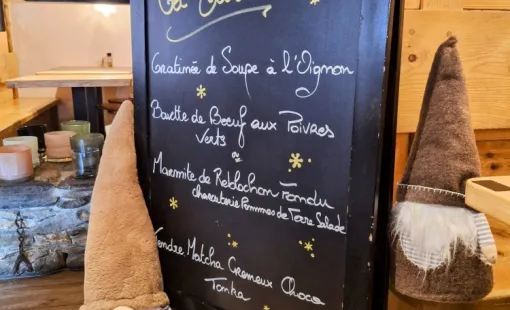 Gratinée de Soupe à l'Oignon
Bavette de Boeuf aux Poivres
verts
ou
Marmite de Reblochon Fondu
charcuterie Pommes de Terre Salade
Tendre Matcha Cremeux Choco
Tonka